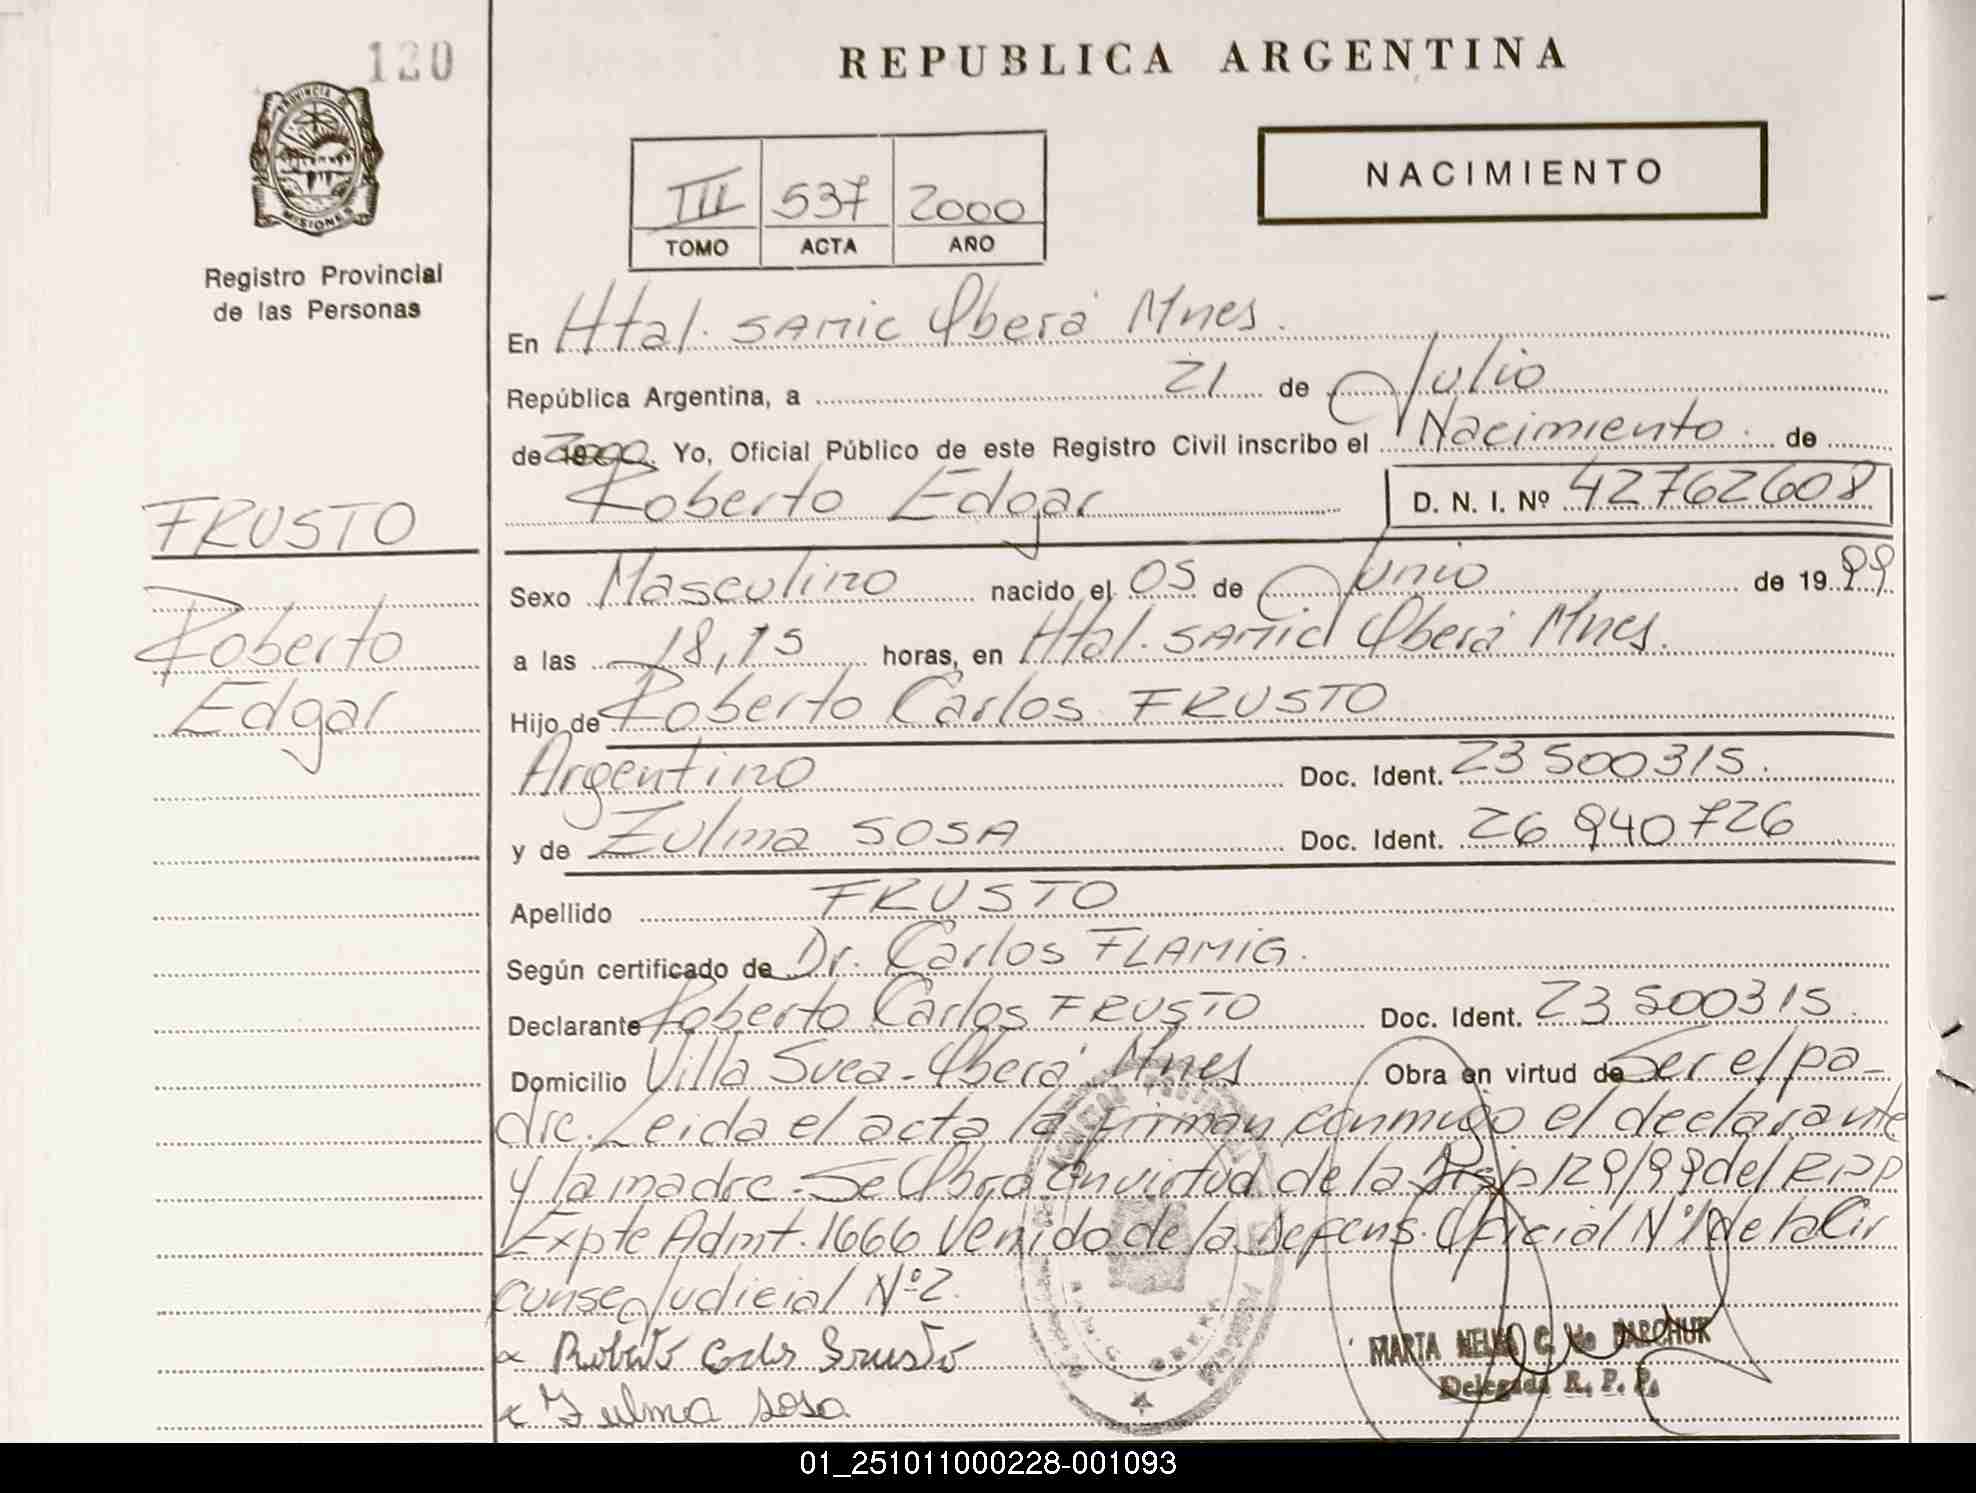 120
REPUBLICA ARGENTINA
PROVINCIA DE
MISIONES
Registro Provincial
de las Personas
III 537 2000
TOMO ACTA AÑO
NACIMIENTO
En Htal. SAMIC Oberá Mnes.
República Argentina, a 21 de Julio
de 2000. Yo, Oficial Público de este Registro Civil inscribo el Nacimiento de
Roberto Edgar D. N. I. Nº 42762608
FRUSTO
Roberto
Edgar
Sexo Masculino nacido el 05 de Junio de 1999
a las 18,15 horas, en Htal. SAMIC Oberá Mnes.
Hijo de Roberto Carlos FRUSTO
Argentino Doc. Ident. 23500315.
y de Zulma SOSA Doc. Ident. 26940726
Apellido FRUSTO
Según certificado de Dr. Carlos FLAMIG.
Declarante Roberto Carlos FRUSTO Doc. Ident. 23500315.
Domicilio Villa Svea - Oberá Mnes Obra en virtud de Ser el pa-
dre. Leida el acta la firman conmigo el declarante
y la madre. Se Obra en virtud de la Disp 129/99 del RPP
Expte Admt. 1666 Venido de la Defens. Oficial Nº1 de la Cir
cunsc Judicial Nº2.
x Roberto Carlos Frusto
x Zulma Sosa
MARTA NELIDA C. de DARCHUK
Delegada R. P. P.
01_251011000228-001093